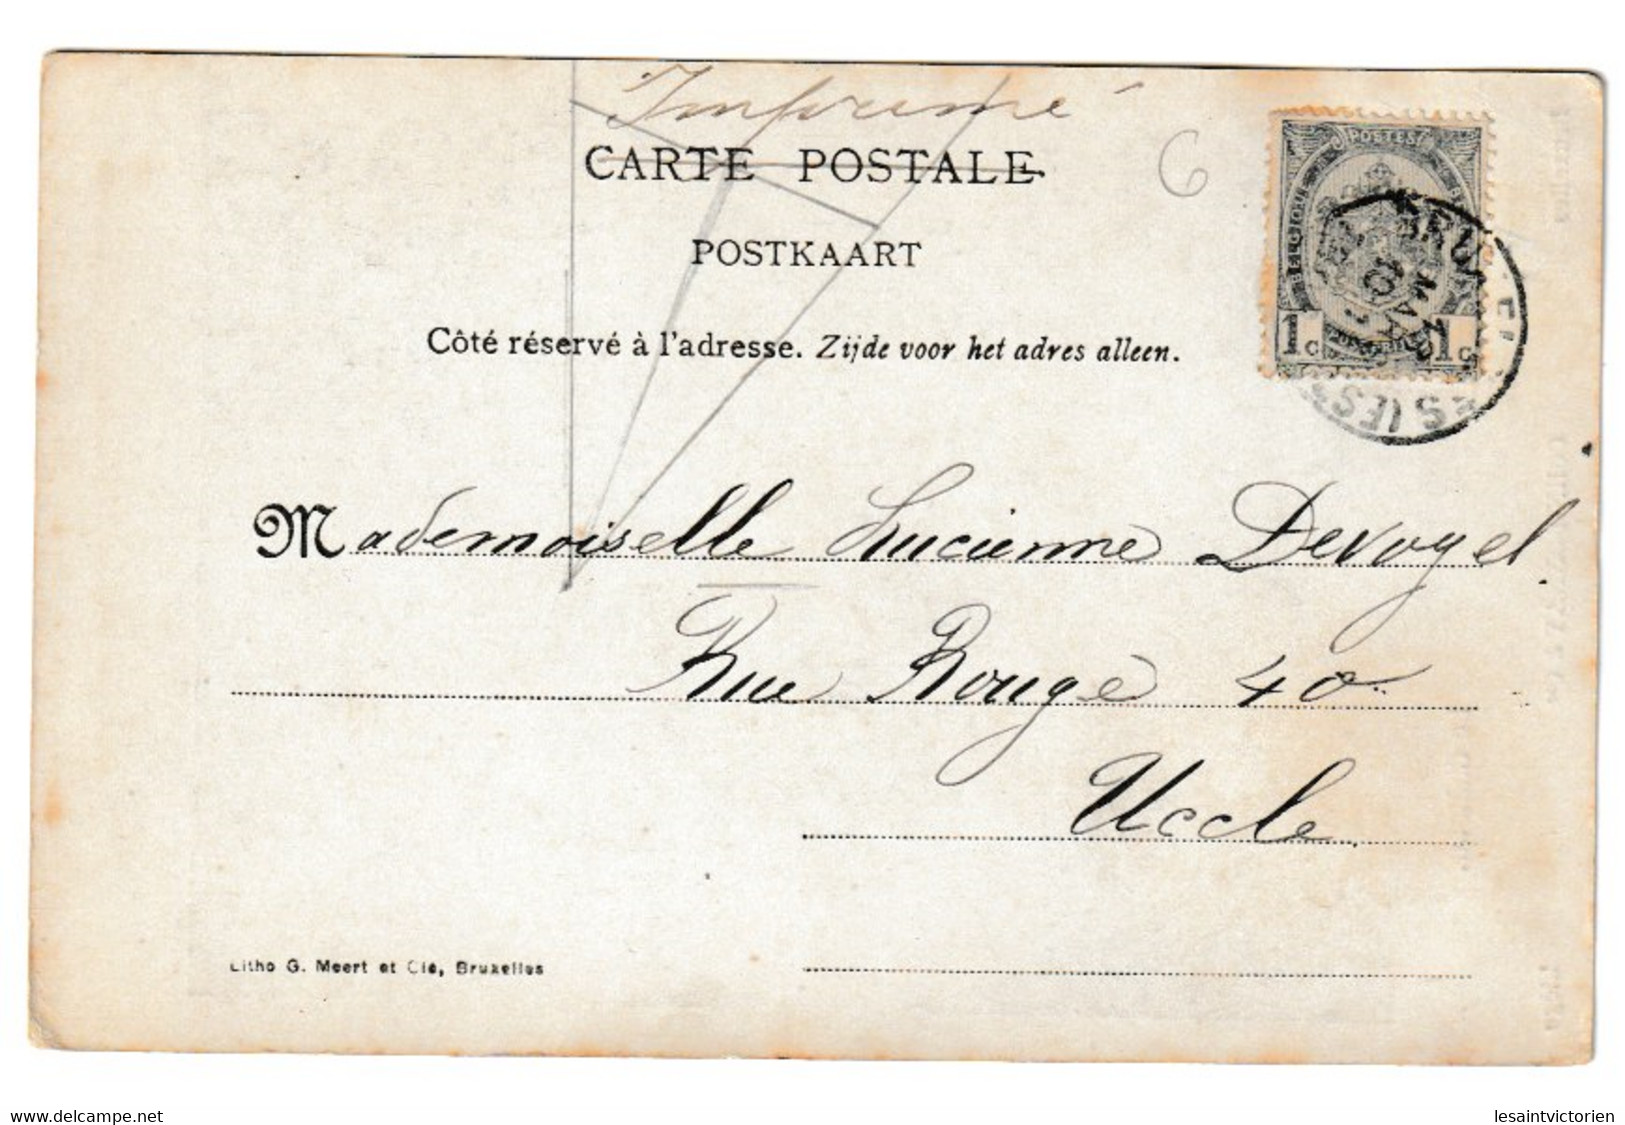 Imprimé
CARTE POSTALE
6
POSTKAART
Côté réservé à l'adresse. Zijde voor het adres alleen.
POSTES
BELGIQUE
1c 1c
MARS
Mademoiselle Lucienne Devogel.
Rue Rouge 40
Uccle
Litho G. Meert et Cie, Bruxelles
www.delcampe.net
lesaintvictorien